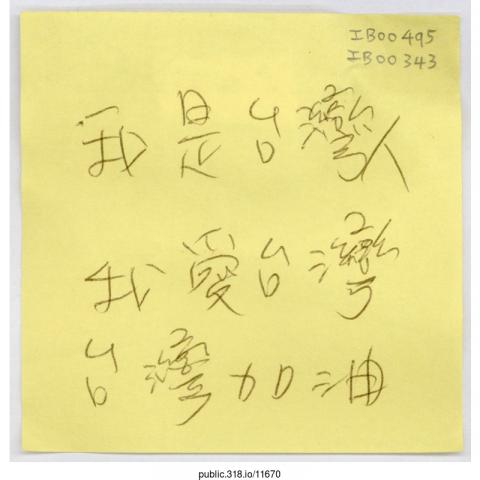 IB00495
IB00343
我是台灣人
我愛台灣
台灣加油
public.318.io/11670